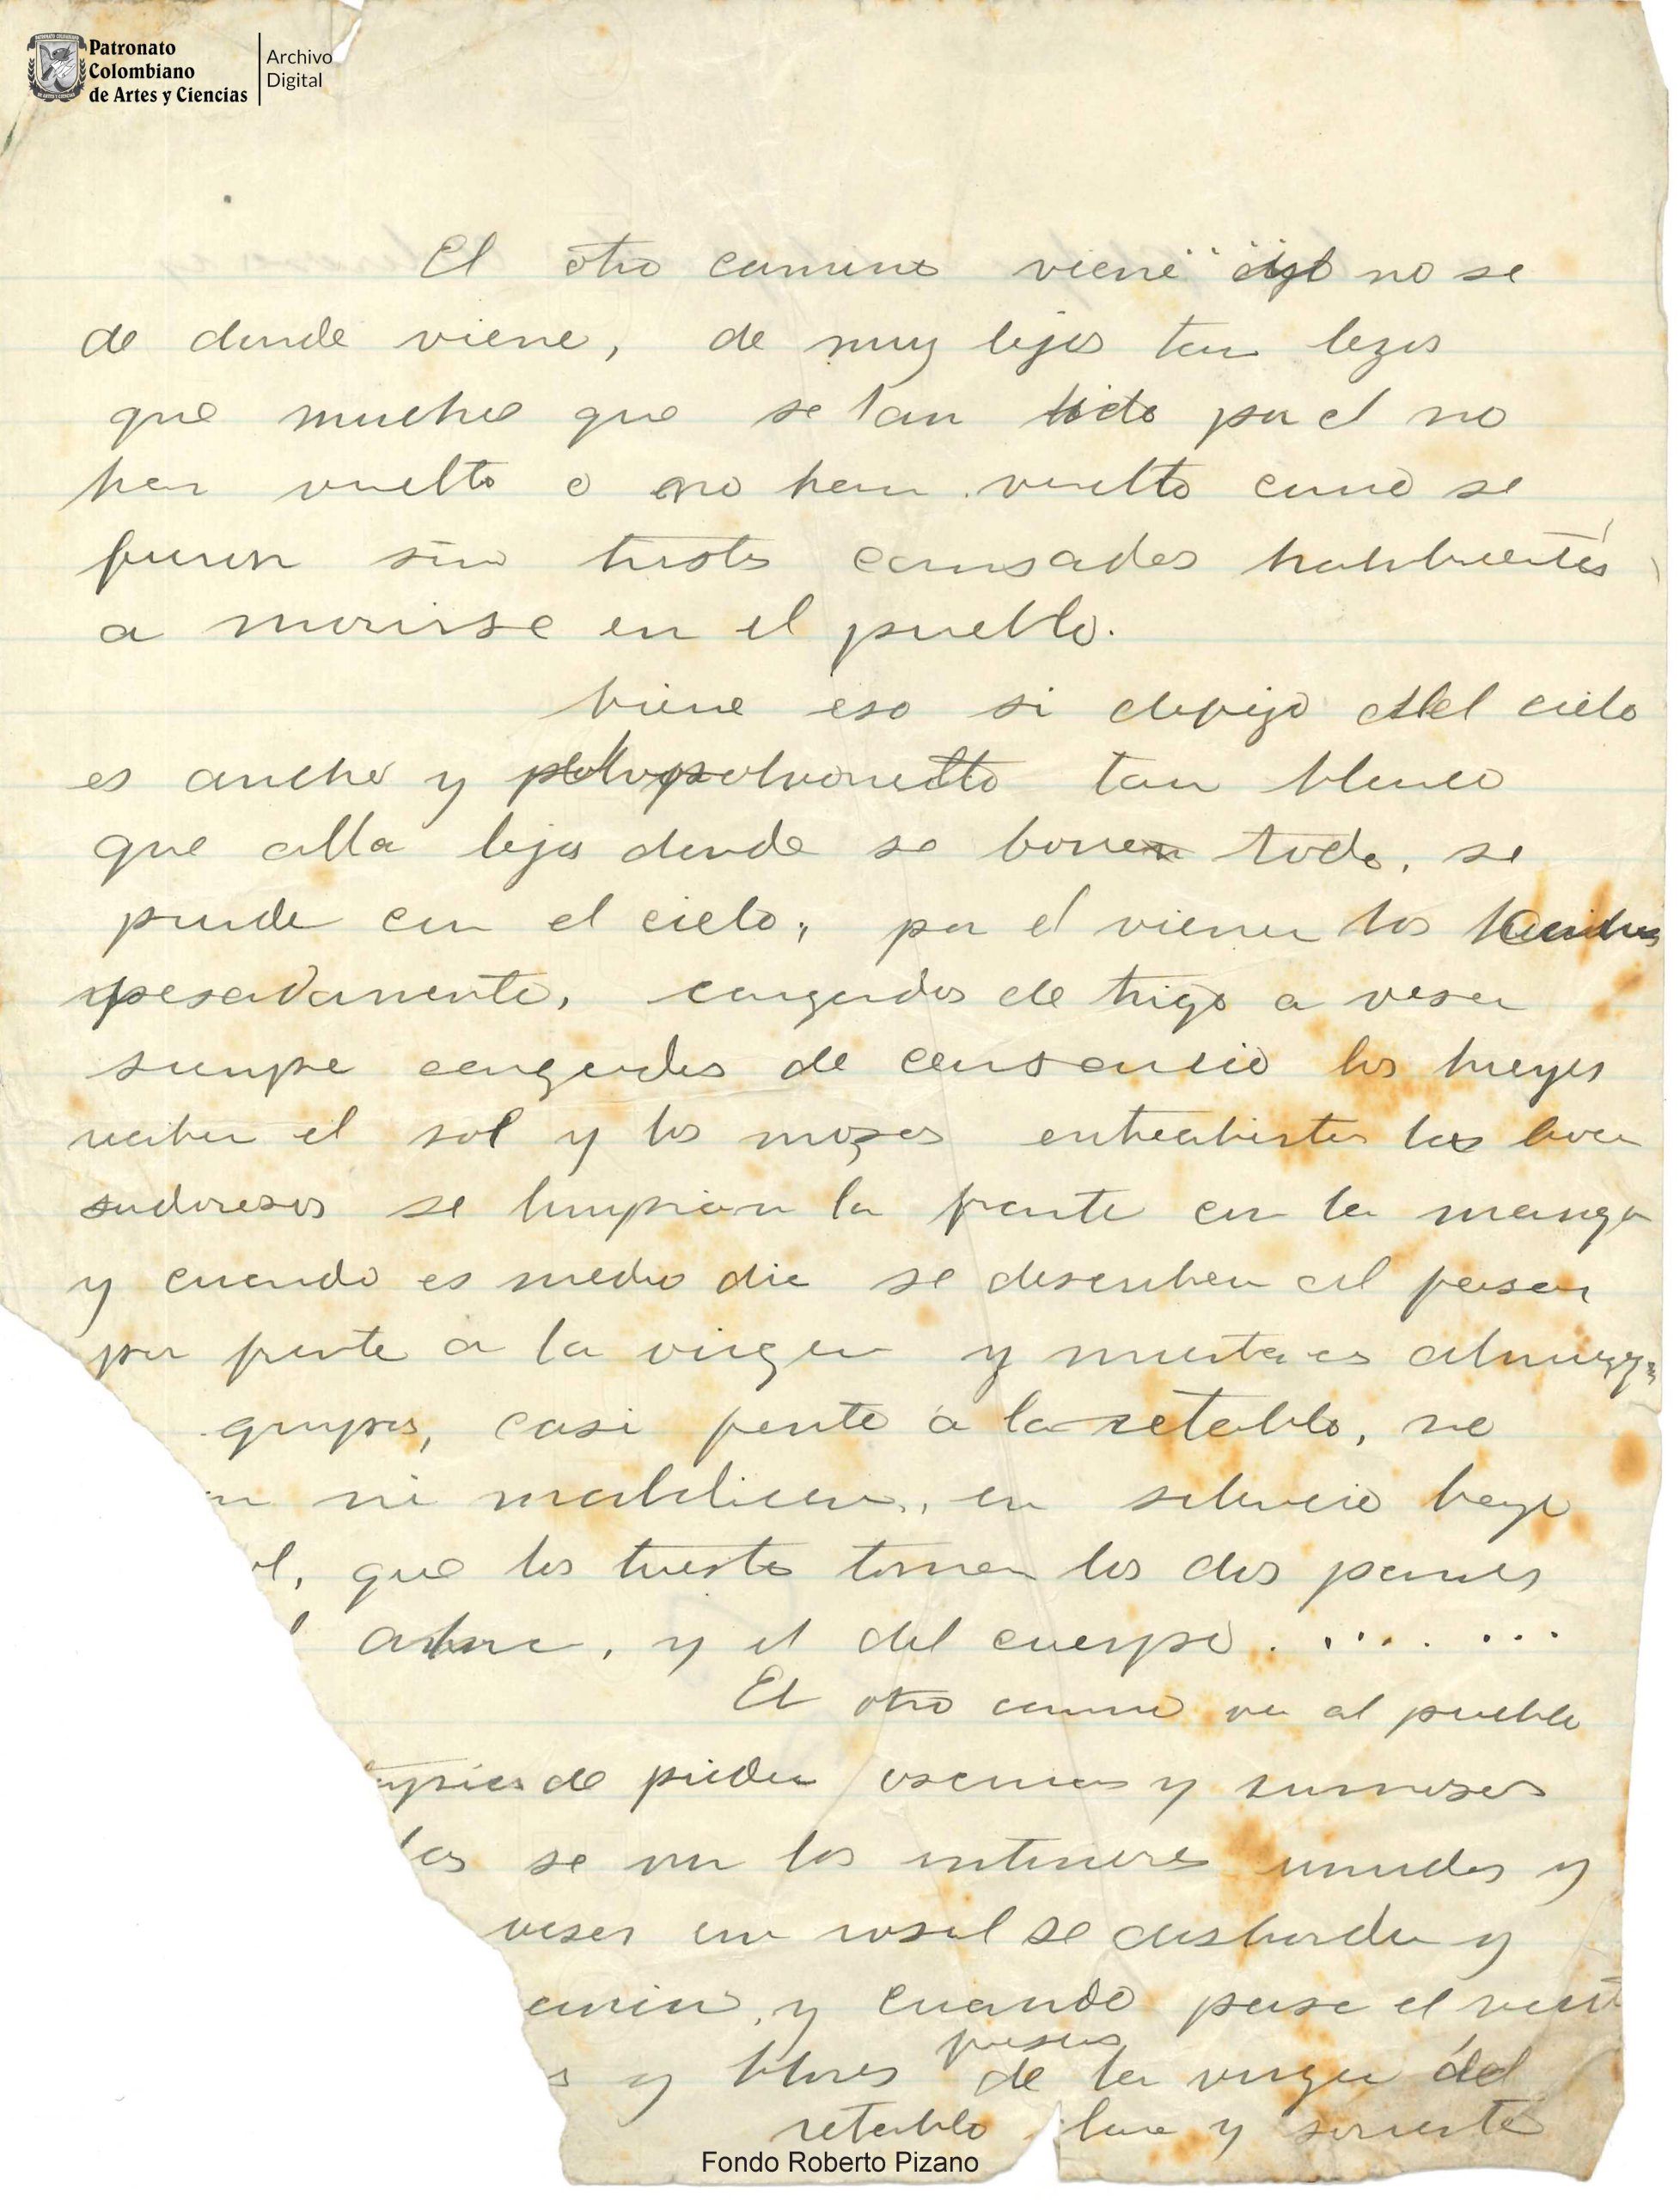 Patronato
Colombiano
de Artes y Ciencias
Archivo
Digital
El otro camino viene no se
de donde viene, de muy lejos tan lejos
que muchos que se han ido por el no
han vuelto o no han vuelto como se
fueron sino tristes cansados
a morirse en el pueblo.
Viene eso si del cielo
es ancho y polvoriento tan blanco
que alla lejos donde se borra todo, se
punde con el cielo; por el vienen los
pesadamente, cargados de trigo a veses
siempre cargados de cansancio los bueyes
reciben el sol y los mozos entreabiertas las bocas
sudorosos se limpian la frente con la manga
y cuando es medio dia se descubren al pasar
por frente a la virgen y mientras
grupos, casi frente a la retablo, no
ni maldicen, en silencio bajo
ol, que los tuesta toman los dos panes
alma, y el del cuerpo. . . . . . . .
El otro camino va al pueblo
de piedra oscuras y rumorosas
las se ven los interiores y
veses un rosal se desborda y
y cuando pasa el vient
pasos
s y flores de la virgen del
retablo y sonriente
Fondo Roberto Pizano